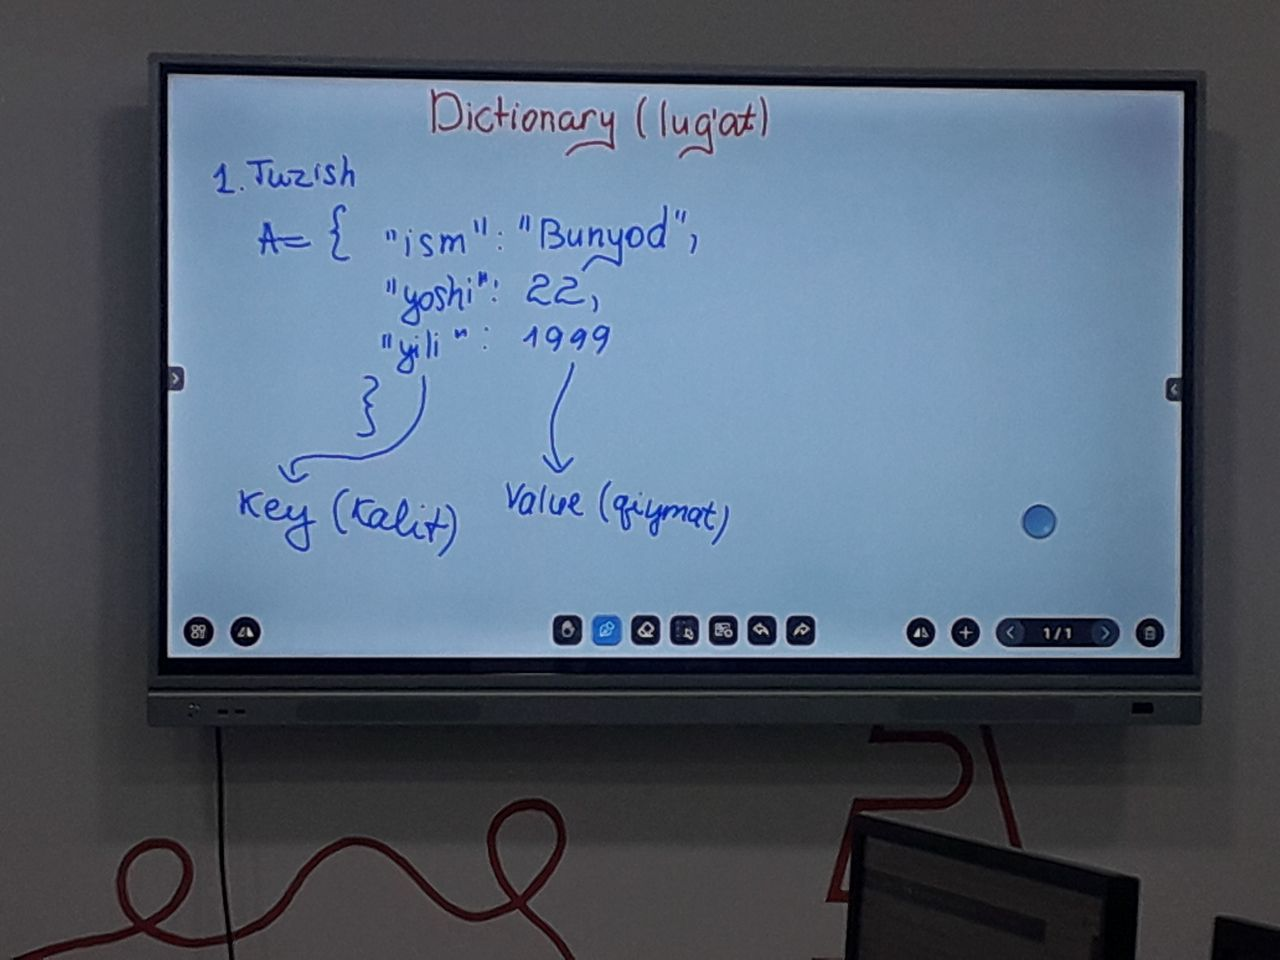 Dictionary (lug'at)
1. Tuzish
A= { "ism": "Bunyod",
"yoshi": 22,
"yili": 1999
}
Key (Kalit) Value (qiymat)
1/1